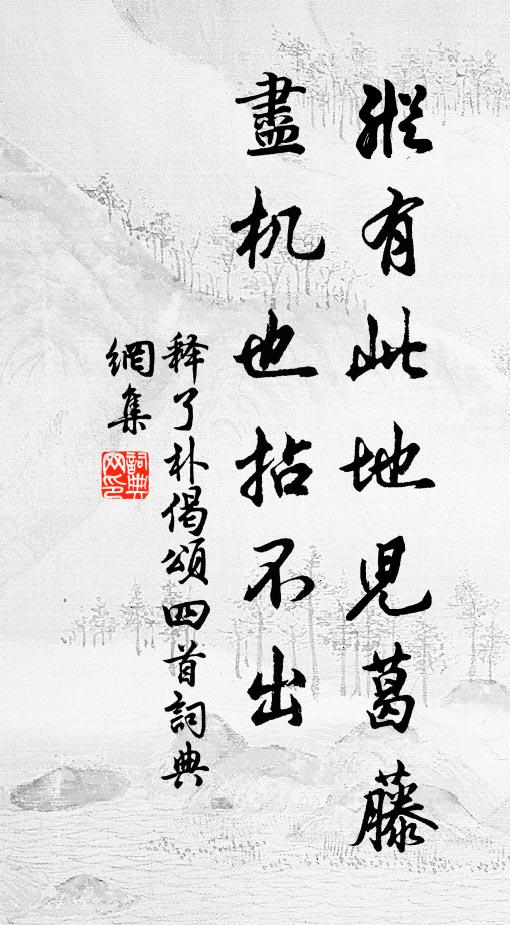 縱有此地見葛藤
盡机也拈不出
释了朴偈頌四首詞典
網集
詞典網印